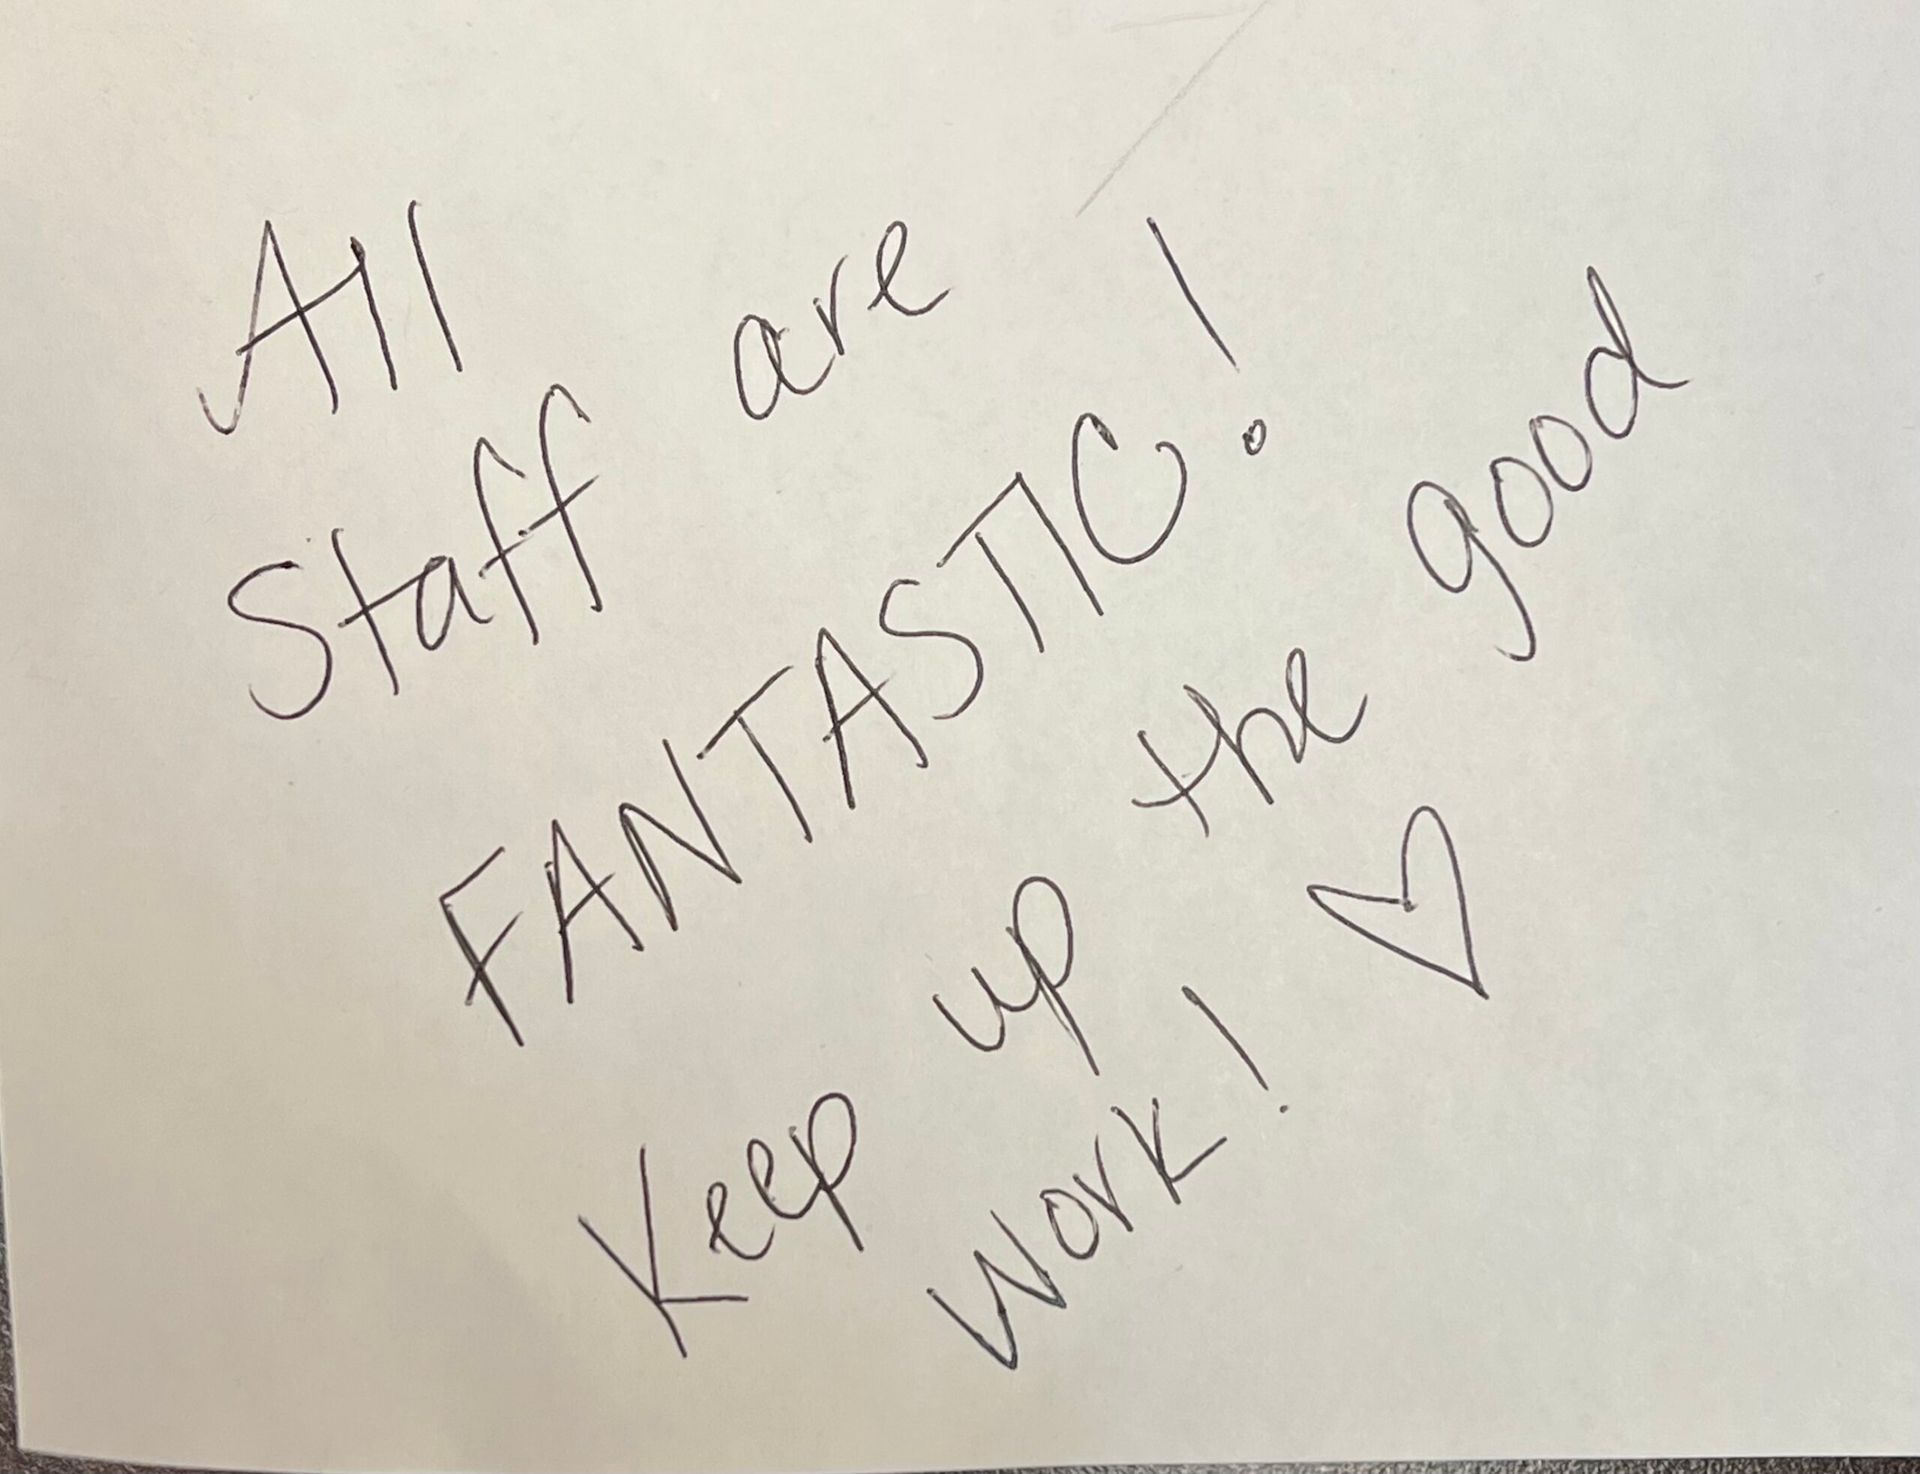 All
Staff are
FANTASTIC!
Keep up the good
Work! ♡